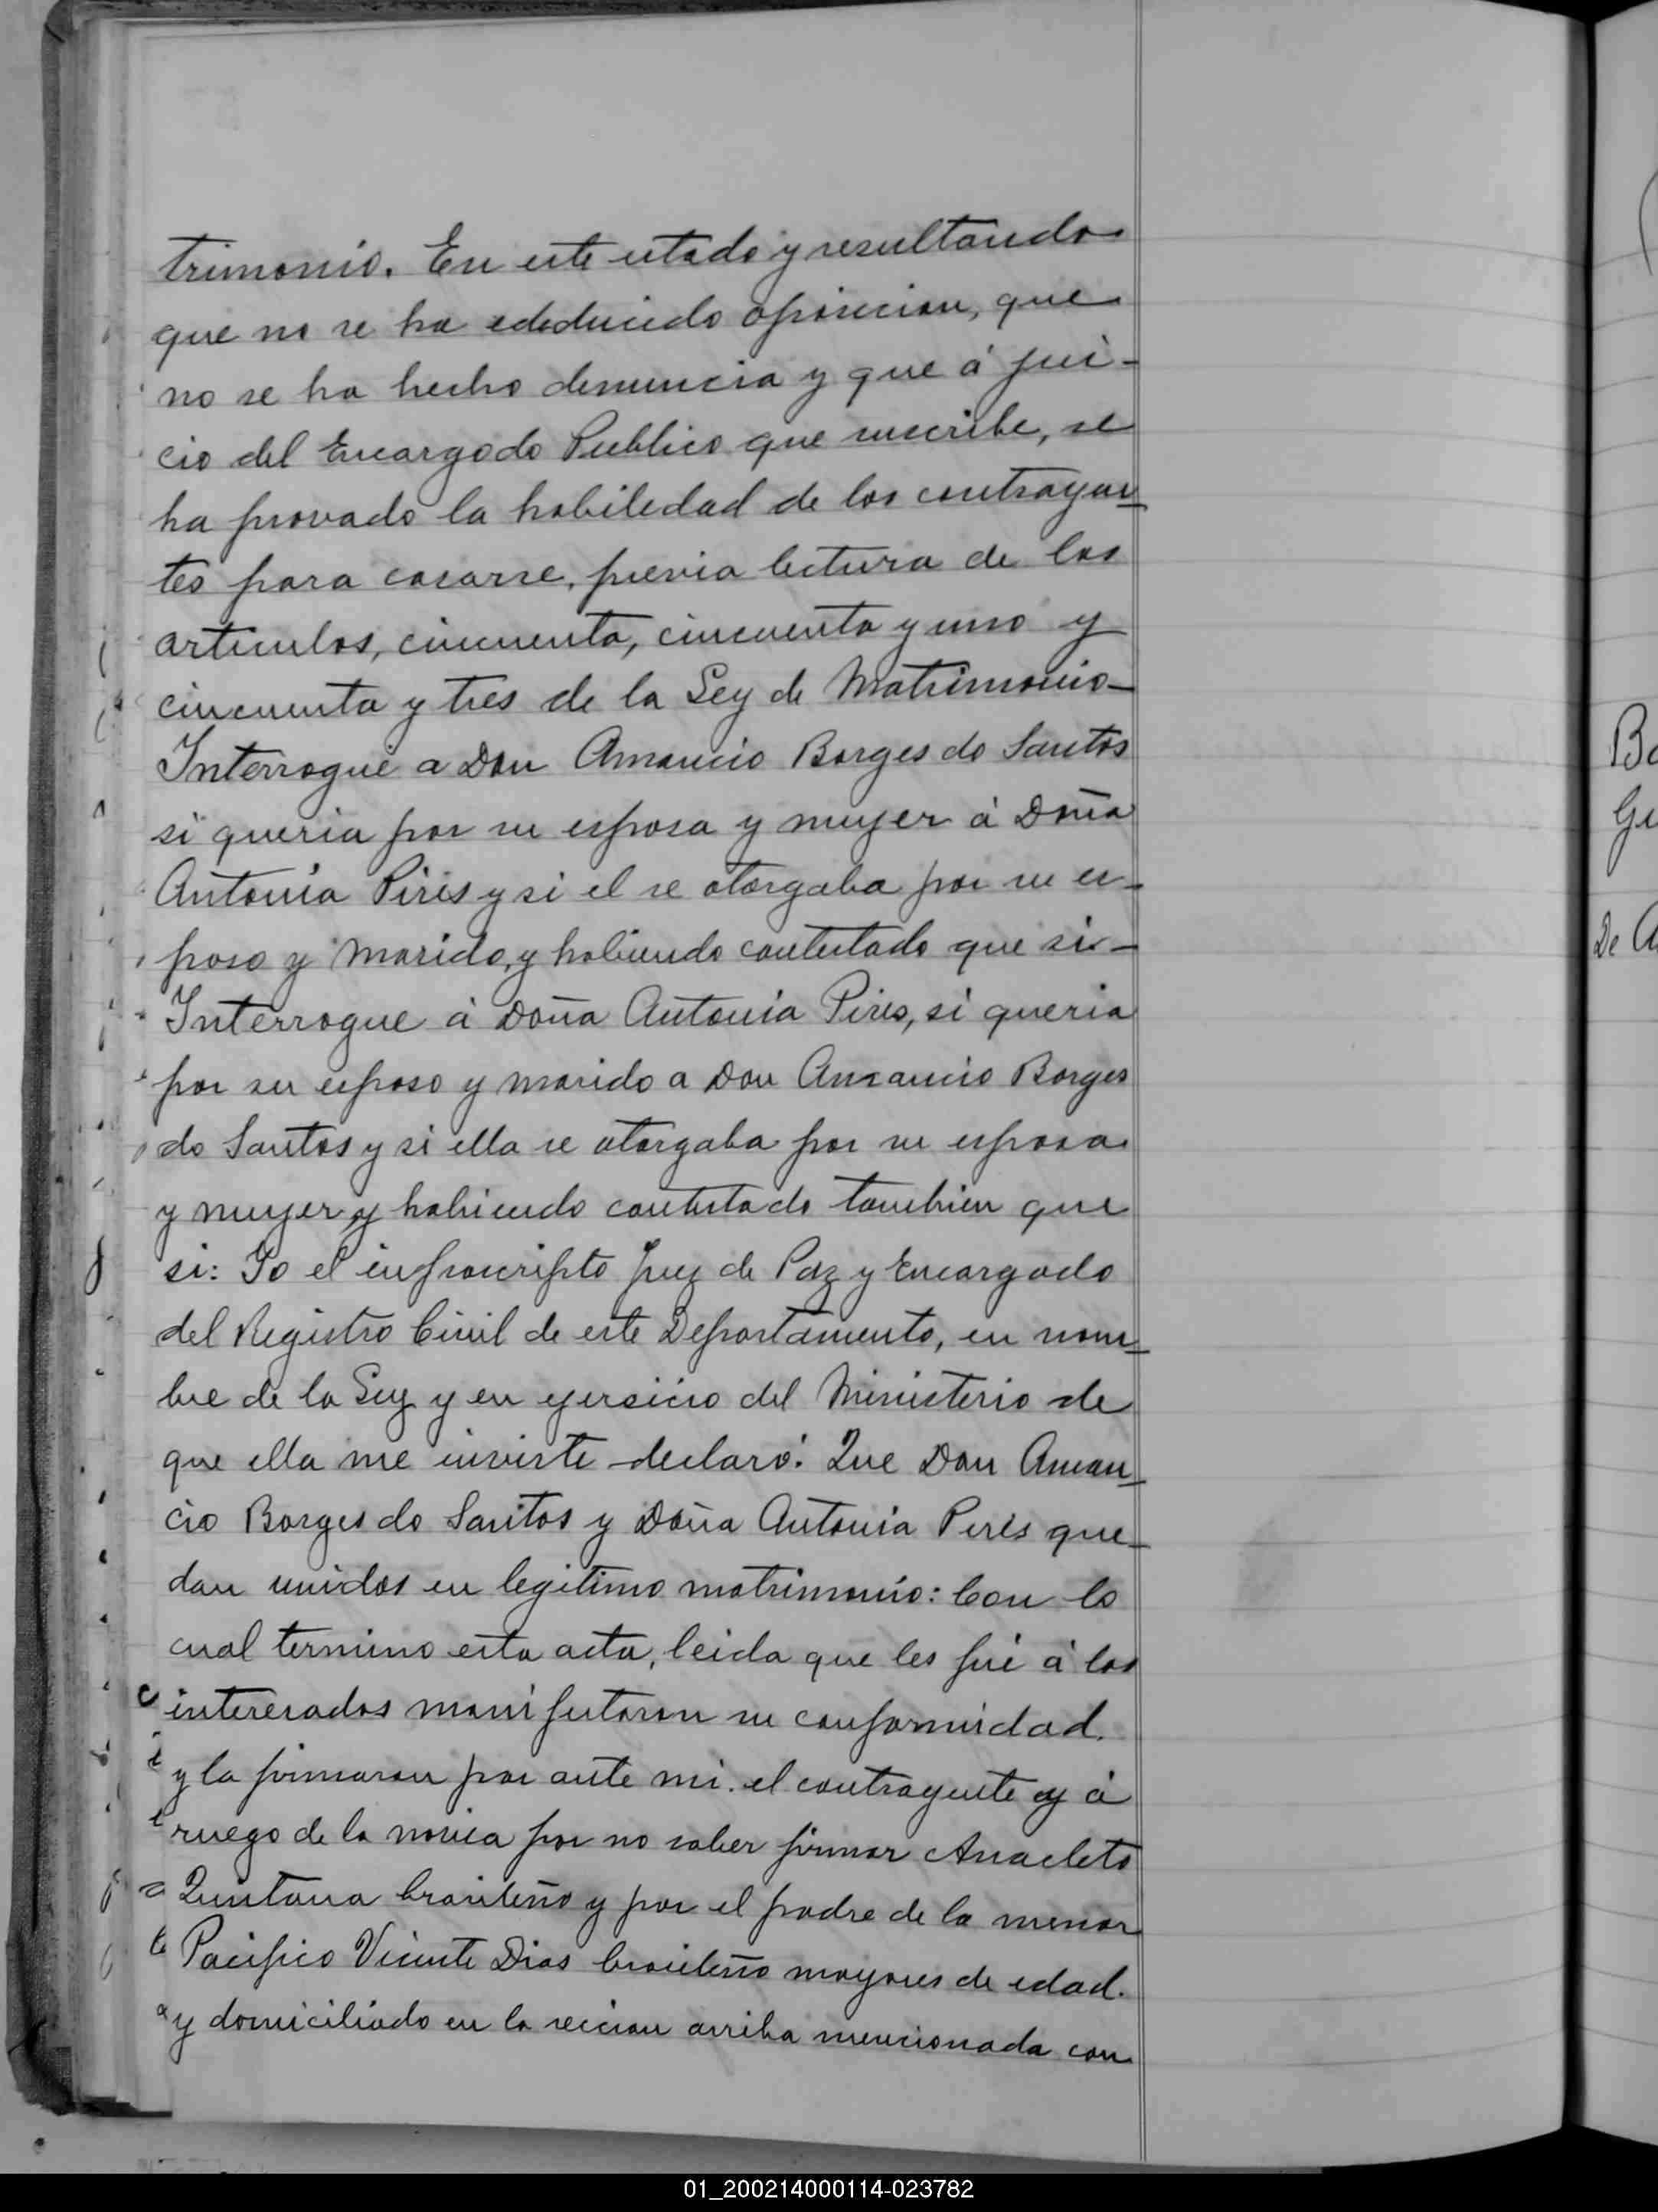 trimonio. En este estado y resultando
que no se ha deducido oposicion, que
no se ha hecho denuncia y que á jui-
cio del Encargado Publico que suscribe, se
ha provado la habiledad de los contrayan-
tes para casarse, previa lectura de los
articulos, cincuenta, cincuenta y uno y
cincuenta y tres de la Ley de Matrimonio-
Interrogué a Don Amancio Borges do Santos
si queria por su esposa y mujer á Doña
Antonia Piris y si el se otorgaba por su es-
poso y marido, y habiendo contestado que si-
Interrogue á Doña Antonia Piris, si queria
por su esposo y marido a Don Amancio Borges
do Santos y si ella se otorgaba por su esposa
y mujer y habiendo contestado tambien que
si: Yo el infrascripto Juez de Paz y Encargado
del Registro Civil de este Departamento, en nom-
bre de la Ley y en ejersicio del Ministerio de
que ella me inviste declaró: Que Don Aman-
cio Borges do Santos y Doña Antonia Peris que-
dan unidos en legitimo matrimonio: Con lo
cual termino esta acta, leida que les fué á los
interesados manifestaron su conformidad.
y la firmaron por ante mi. el contrayente y á
ruego de la novia por no saber firmar Anacleto
Quintana brasileño y por el padre de la menor
Pacifico Vicente Dias brasileño mayores de edad.
y domiciliado en la seccion arriba mencionada con
Ba
Gu
De A
01_200214000114-023782